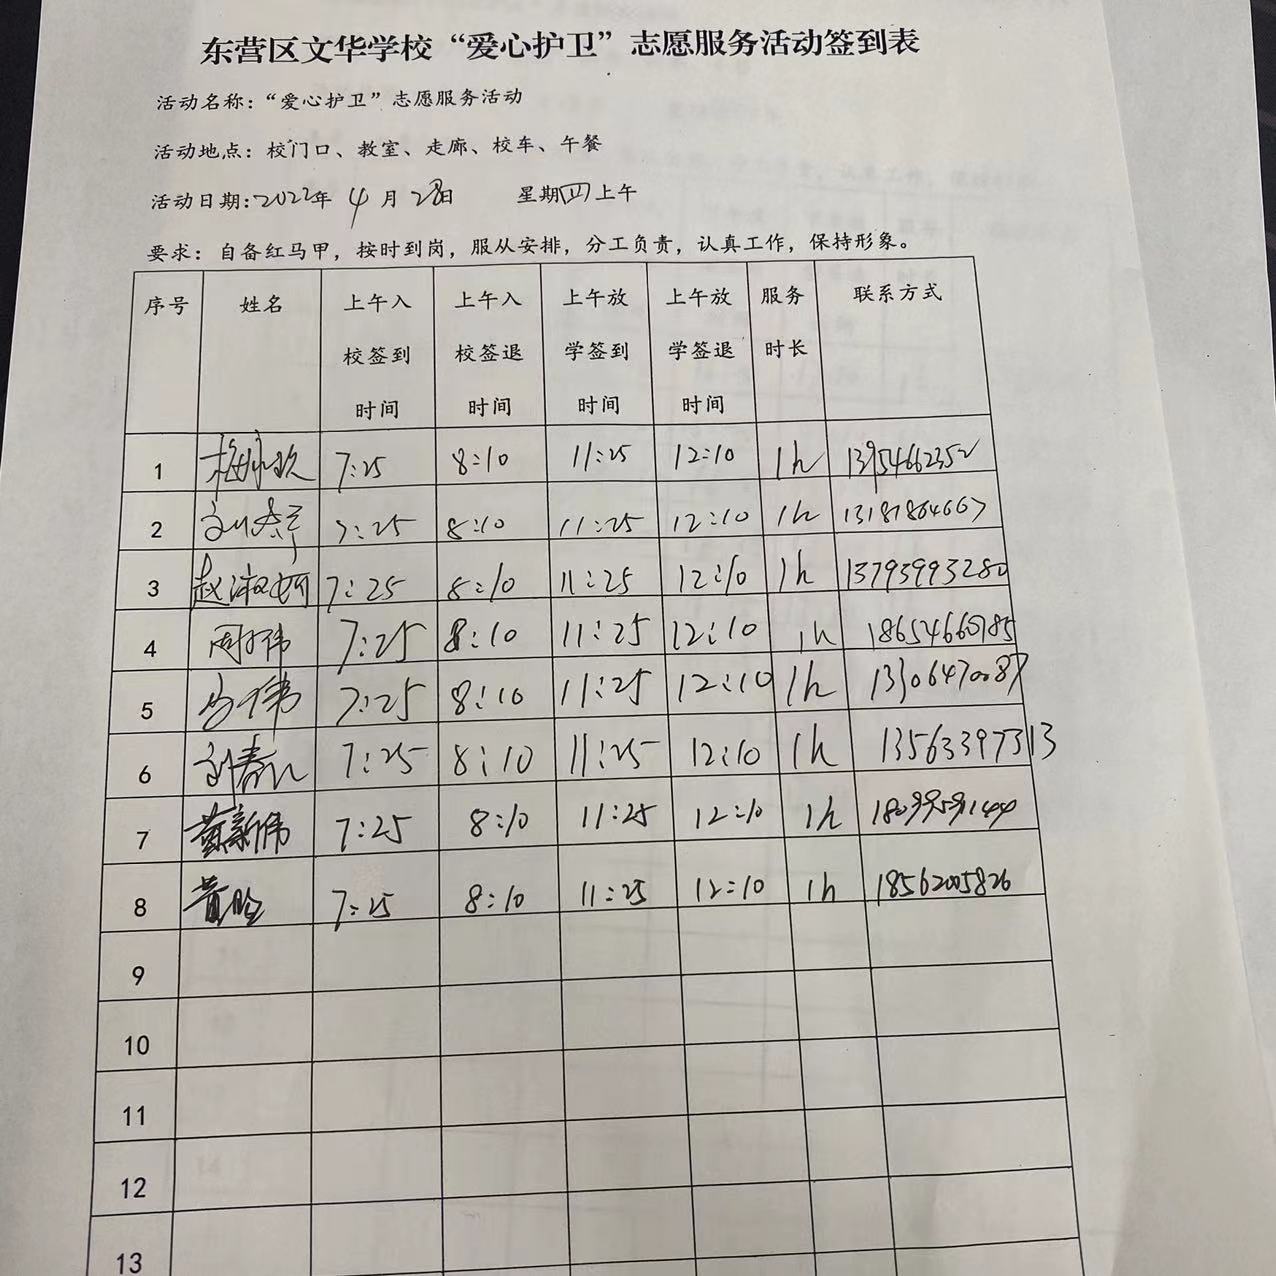 东营区文华学校“爱心护卫”志愿服务活动签到表
活动名称：“爱心护卫”志愿服务活动
活动地点：校门口、教室、走廊、校车、午餐
活动日期：2022年 4月28日 星期四上午
要求：自备红马甲，按时到岗，服从安排，分工负责，认真工作，保持形象。
序号 姓名 上午入校签到时间 上午入校签退时间 上午放学签到时间 上午放学签退时间 服务时长 联系方式
1 7:25 8:10 11:25 12:10 1h 13954662352
2 7:25 8:10 11:25 12:10 1h 13181864667
3 赵淑娟 7:25 8:10 11:25 12:10 1h 13793993280
4 7:25 8:10 11:25 12:10 1h 18654660785
5 7:25 8:10 11:25 12:10 1h 13306470087
6 7:25 8:10 11:25 12:10 1h 13563397313
7 7:25 8:10 11:25 12:10 1h
8 7:25 8:10 11:25 12:10 1h 18562005826
9
10
11
12
13